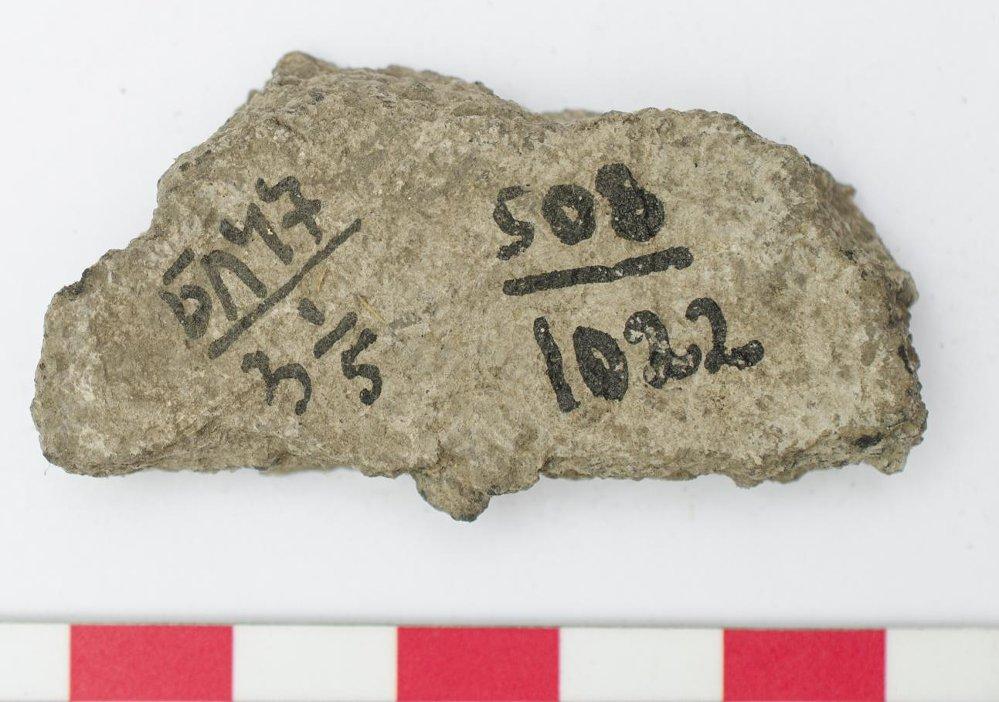 БЛ47
3-15
508
1022